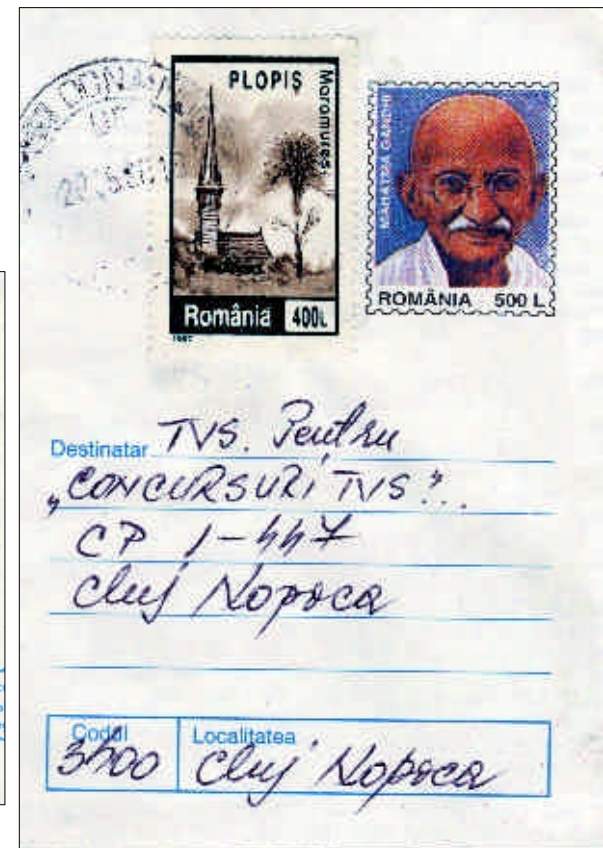 PLOPIȘ
Maramureș
România 400L
MAHATMA GANDHI
ROMÂNIA 500 L
Destinatar TVS. Pentru
„CONCURSURI TVS"
CP 1-447
Cluj Napoca
Codul Localitatea
3400 Cluj Napoca